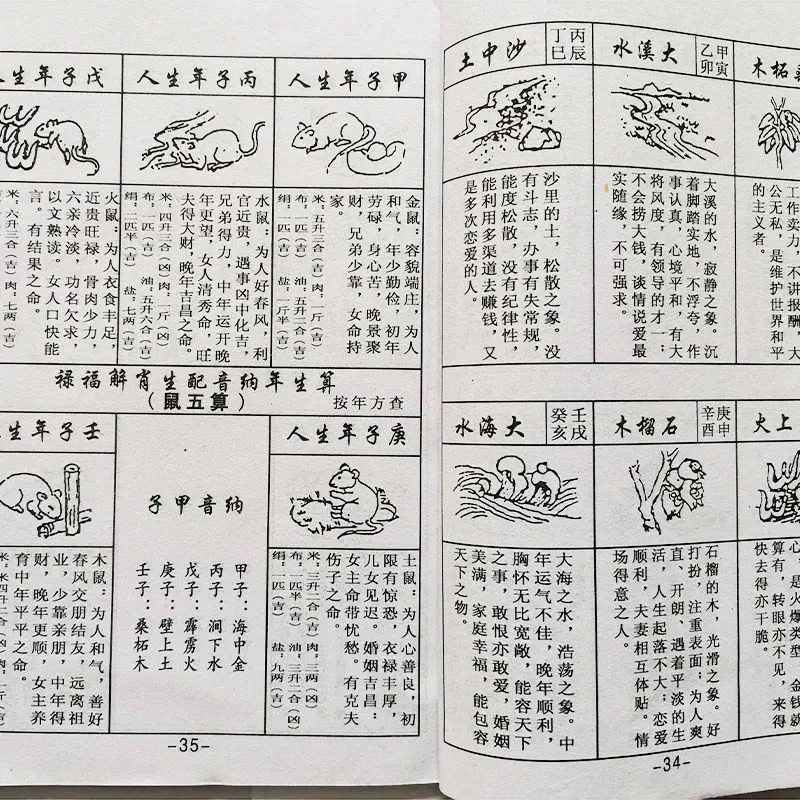 桑柘木
工作卖力，不讲报酬，大
公无私，是维护世界和平
的主义者。
大溪水
甲寅
乙卯
大溪的水，寂静之象。沉
着脚踏实地，不浮夸，作
事认真，心境平和，有大
将风度，有领导的才一；
不会捞大钱，谈情说爱最
实随缘，不可强求。
沙中土
丙辰
丁巳
沙里的土，松散之象。没
有斗志，办事有失常规，
能度松散，没有纪律性，
能利用多渠道去赚钱，又
是多次恋爱的人。
上火
心，是火爆类型，金钱就
算有，转眼亦不见，来得
快去得亦干脆。
石榴木
庚申
辛酉
石榴的木，光滑之象。好
打扮，注重表面；为人爽
直、开朗、遇着平淡的生
活，人生起落不大；恋爱
顺利，夫妻相互体贴。情
场得意之人。
大海水
壬戌
癸亥
大海之水，浩荡之象。中
年运气不佳，晚年顺利，
胸怀无比宽敞，能容天下
之事，敢恨亦敢爱，婚姻
美满，家庭幸福，能包容
天下之物。
-34-
甲子年生人
金鼠：容貌端庄，为人
和气，年少勤俭，初年
劳碌，身心苦，晚景聚
财，兄弟少靠，女命持
家。
米：五升三合（吉）肉：一斤（凶）
布：一匹（吉） 油：五升二合（吉）
绢：一匹（吉） 盐：一斤半（吉）
丙子年生人
水鼠：为人好春风，利
官近贵，遇事凶中化吉，
兄弟得力，中年运开晚
年更望，女人清秀命，旺
夫得大财，晚年吉昌之命。
米：四升三合（凶）肉：一斤（凶）
布：一匹（吉） 油：五升六合（吉）
绢：二匹半（吉） 盐：七两（吉）
戊子年生人
火鼠：为人衣食丰足，
近贵旺禄，骨肉少力，
六亲冷淡，功名欠求，
以文熟读。女人口快能
言。有结果之命。
米：六升三合（吉）肉：七两（吉）
算生年纳音配生肖解福禄
（算五鼠）
查方年按
庚子年生人
土鼠：为人心善良，初
限有惊恐，衣禄丰厚，
儿女见迟。婚姻吉昌：
女主命带忧愁。有克夫
伤子之命。
米：三升一合（凶）肉：三两（凶）
布：一匹半（吉） 油：三升二合（凶）
绢：一匹（吉） 盐：九两（吉）
纳音甲子
甲子：海中金
丙子：涧下水
戊子：霹雳火
庚子：壁上土
壬子：桑柘木
壬子年生人
木鼠：为人和气，善好
春风交朋结友，远离祖
业，少靠亲朋，中年得
财，晚年更顺，女主养
育中年平平之命。
-35-